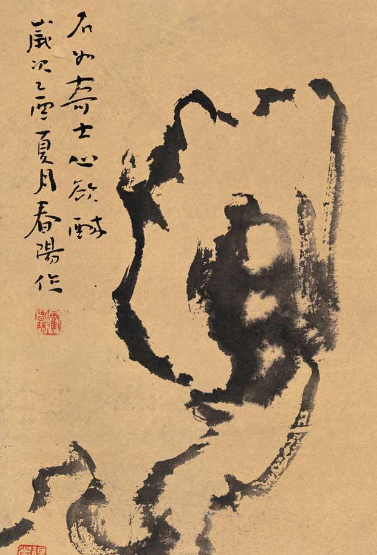 石如奇士心欲醉
歲次乙酉夏月春陽作